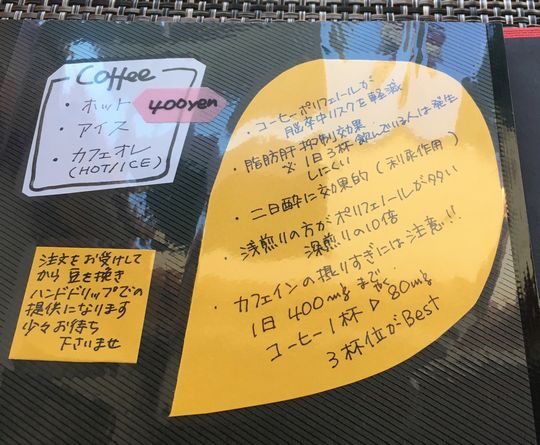 Coffee
・ホット
400yen
・アイス
・カフェオレ
(HOT/ICE)
注文をお受けして
から 豆を挽き
ハンドドリップでの
提供になります
少々お待ち
下さいませ
・コーヒーポリフェノールが
脳卒中リスクを軽減
・脂肪肝抑制効果
※1日3杯飲んでいる人は発生
しにくい
・二日酔に効果的(利尿作用)
・浅煎りの方がポリフェノールが多い
深煎りの10倍
・カフェインの摂りすぎには注意!!
1日400mgまで
コーヒー1杯▷80mg
3杯位がBest